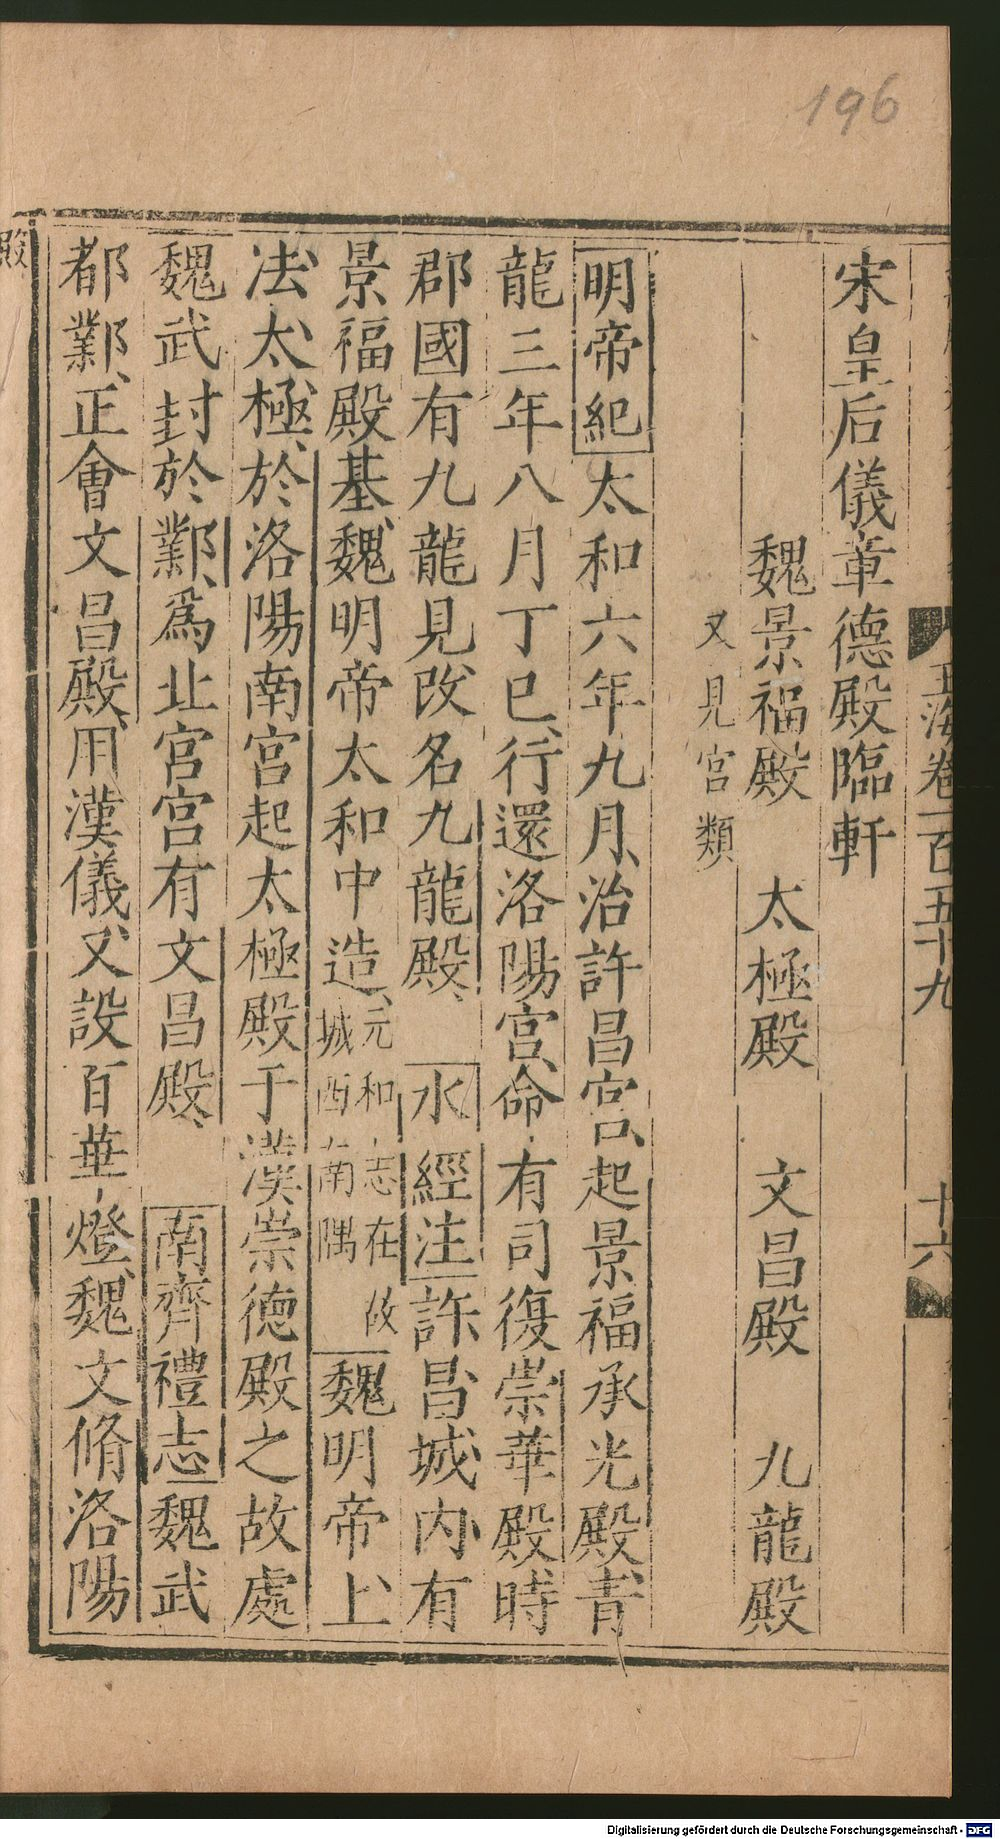 196
玉海卷一百五十九 十六
宋皇后儀章德殿臨軒
魏景福殿 太極殿 文昌殿 九龍殿
又見宮類
明帝紀太和六年九月治許昌宮起景福承光殿青
龍三年八月丁巳行還洛陽宮命有司復崇華殿時
郡國有九龍見改名九龍殿 水經注許昌城內有
景福殿基魏明帝太和中造元和志在故城西南隅魏明帝上
法太極於洛陽南宮起太極殿于漢崇德殿之故處
魏武封於鄴為北宮宮有文昌殿 南齊禮志魏武
都鄴正會文昌殿用漢儀又設百華燈魏文脩洛陽
殿
Digitalisierung gefördert durch die Deutsche Forschungsgemeinschaft - DFG